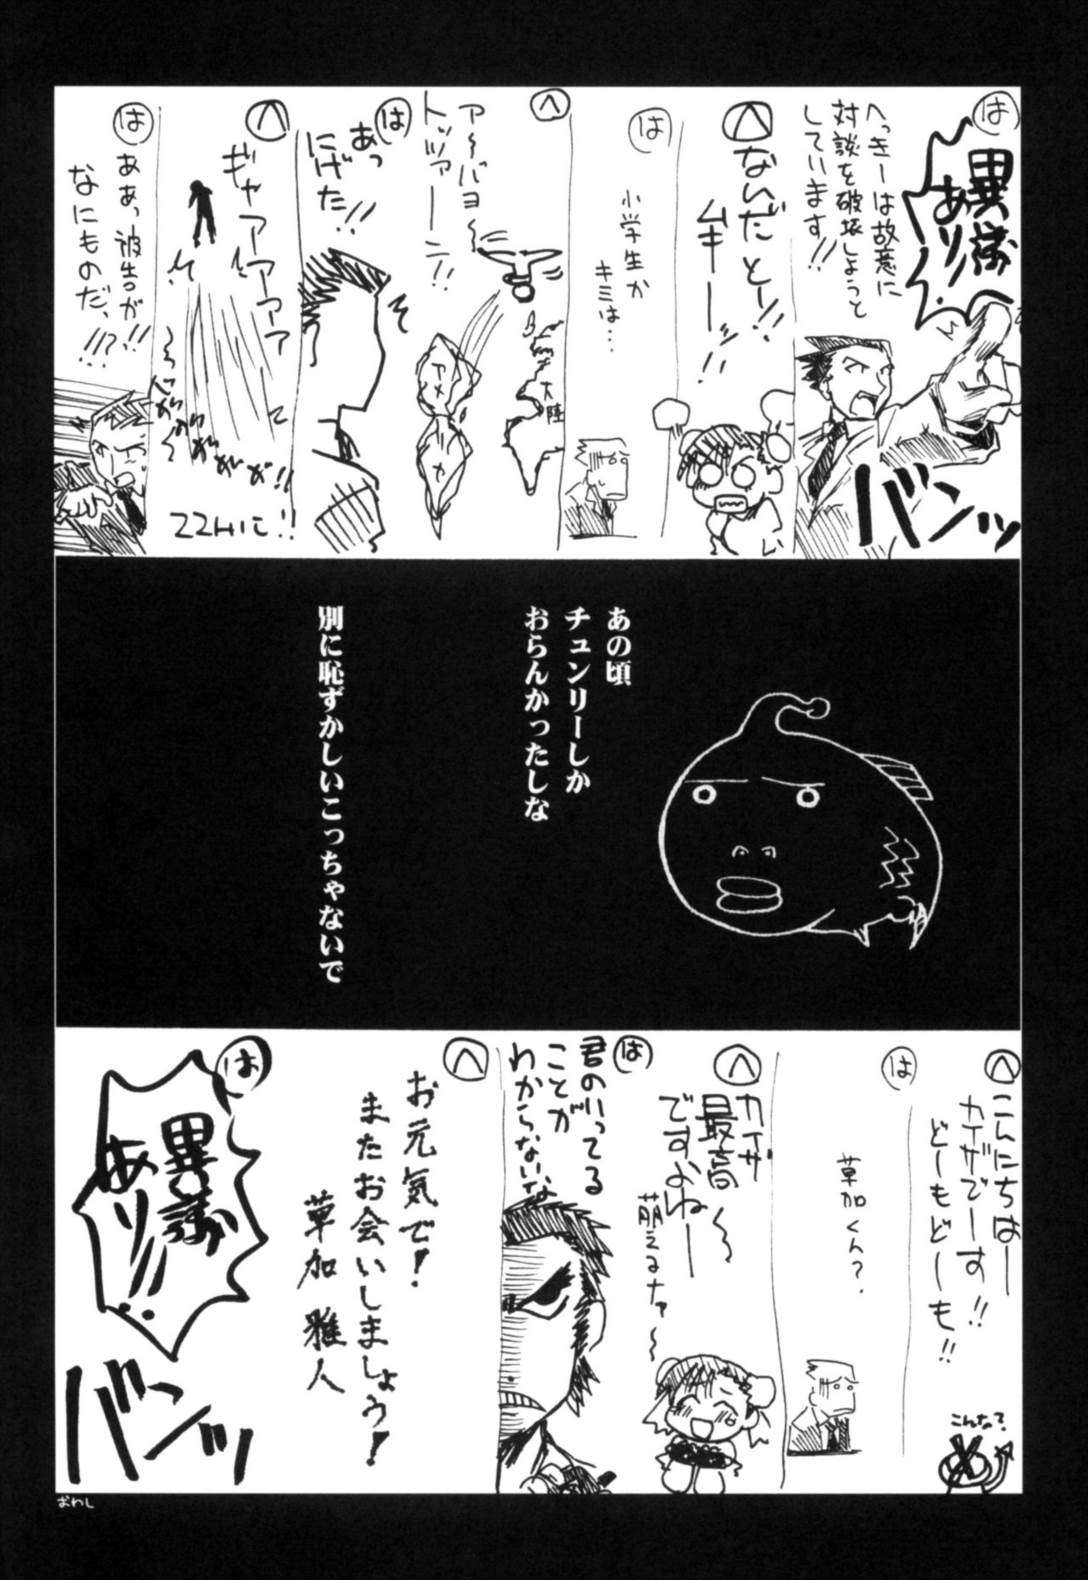 は
異議
あり!!
へっきーは故意に
対談を破壊しようと
しています!!
バンッ
へ
なんだとー!!
ムキーー!!
は
小学生か
キミは…
へ
ア〜バヨ〜
トッツァーーン!!
大陸
アメリカ
は
あっ
にげた!!
へ
ギャアアアアア
は
ああっ被告が!!
なにものだ、!?
あの頃
チュンリーしか
おらんかったしな
別に恥ずかしいこっちゃないで
へ
こんにちはー
カイザでーす!!
どーもどーも!!
こんなの?
は
草加くん?
へ
カイザ
最高
ですよねー〜
萌えるナァ〜
は
君のいってる
ことが
わからないな
へ
お元気で!
またお会いしましょう!
草加 雅人
は
異議
あり!!
バンッ
おわし